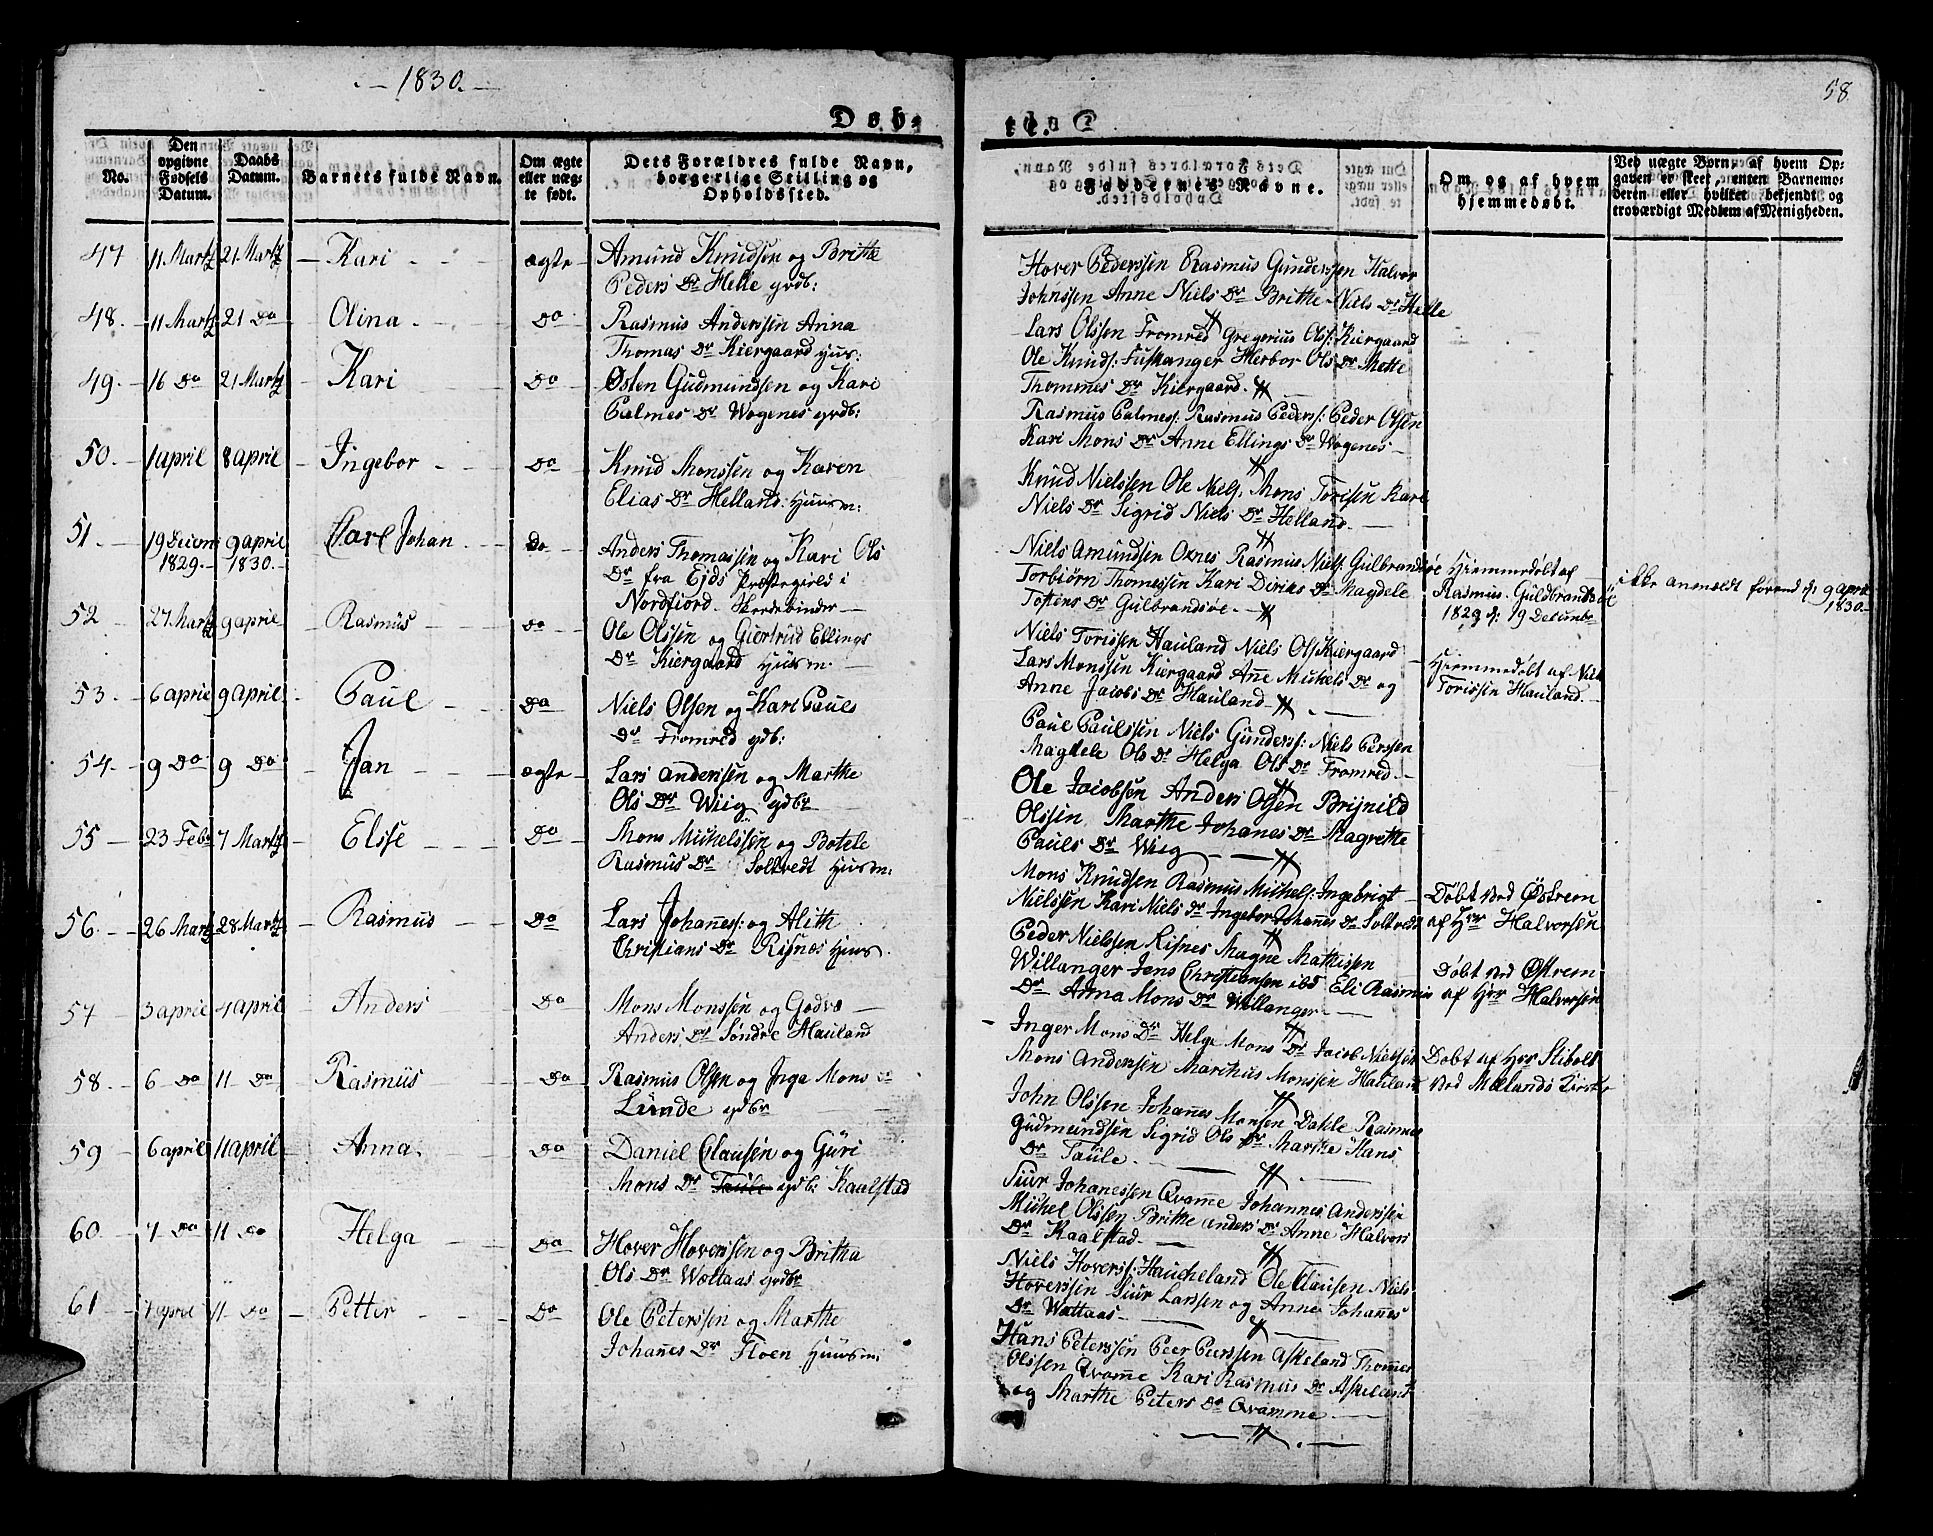 - 1830. -
58
Døb-
te.
No.
Den opgivne Fødsels Datum.
Daabs Datum.
Barnets fulde Navn.
Om ægte eller uægte født.
Dets Forældres fulde Navn, borgerlige Stilling og Opholdssted.
Faddernes Navne.
Om og af hvem hjemmedøbt.
Ved uægte Børn, af hvem Opgaven er skeet, enten Barnemoderen eller hvilket bekjendt og troværdigt Medlem af Menigheden.
47 11 Martz 21 Martz - Kari - ægte Amund Knudsen og Britte
Peders Dr Helle grdb:
48. 11 Martz 21 Do Olina - Do Rasmus Anderssen Anna
Thomas Dr Kiergaard Hus:
49. 16 Do 21 Martz Kari Do Østen Gudmundsen og Kari
Palmes Dr Wogenes grdb:
50. 1 april 8 april - Ingebor - Do Knud Monssen og Karen
Elias Dr Helland. Huusm:
51. 19 Decem 9 april Carl Johan - Do Anders Thomassen og Kari Ols
1829. 1830. Dr fra Ejds Præstegield i
Nordfiord.
52 27 Martz 9 april Rasmus Do Ole Olssen og Giertrud Ellings
Dr Kiergaard Huusm.
53. 6 april 9 april - Paul - Do Niels Olsen og Kari Pauls
Dr Fromred gdb:
54. 9 Do 9 Do - Jan - ægte Lars Anderssen og Marthe
Ols Dr Wiig gdbr
55 - 23 Febr 7 Martz Elsse - Do Mons Michelssen og Botele
Rasmus Dr Soltvedt Huusm:
56. 26 Martz 28 Martz Rasmus - Do Lars Johaness: og Alith
Christians Dr Risnes Huus
57 - 3 april 4 april Anders Do Mons Monssen og Godve
Anders Dr Søndre Hauland
58 - 6 Do 11 Do Rasmus Do Rasmus Olsen og Inga Mons Dr
Lunde gdbr
59 6 april 11 april Anna. Do Daniel Clausen og Guri
Mons Dr Taule gdb: Kaalstad
60. 7 Do 11 Do Helga Do Hover Hoverssen og Britha
Ols Dr Wætaas grdbr
61 - 7 april 11 Do - Petter - Do Ole Peterssen og Marthe
Johanes Dr Floen Huusm:
Hover Pederssen Rasmus Gunderssen Halvor
Johnssen Anne Niels Dr Brithe Niels Dr Helle
Lars Olssen Fromred Gregerius Ols: Kiergaard
Ole Knuds: Fuskanger Herbor Ols Dr Mette
Thommes Dr Kiergaard.
Rasmus Palmes: Rasmus Peders: Peder Olsen
Kari Mons Dr Anne Ellings Dr Wogenes -
Knud Nielssen Ole Niels: Mons Torisen Kari
Niels Dr Sigrid Niels Dr Helland. -
Niels Amundsen Oxnes Rasmus Niels: Gulbrandsøe Hiemmedøbt af
Torbiørn Thomessen Kari Diriks Dr Magdele Rasmus Guldbrandsøe ikke anmeldt førend d: 9 april
Tostens Dr Gulbrandsøe. - 1829 d: 19 Decembr 1830.
Niels Torissen Hauland Niels Ols Kiergaard
Lars Monssen Kiergaard Ane Mickels Dr og Hiemmedøbt af Niels
Anne Jacobs Dr Hauland Torissen Hauland.
Paul Paulssen Niels Gunderss: Niels Perssen
Magdele Ols Dr Helga Ols Dr Fromred. -
Ole Jacobsen Anders Olsen Brynild
Olssen Marthe Johanes Dr Magrethe
Pauls Dr Wiig -
Mons Knudsen Rasmus Michels: Ingebrigt Døbt ved Østrem
Nielssen Kari Niels Dr Ingebor Johanes Dr Soltvedt af Hrr Halvorsen
Peder Nielssen Risnes Magne Mathissen
Willanger Jens Christiansen ibd Eli Rasmus Døbt ved Østrem
Dr Anna Mons Dr Willanger - af Hrr Halvorsen
Inger Mons Dr Helge Mons Dr Jacob Nielssen Døbt af Hrr Stibolt
Mons Anderssen Marthus Monssen Hauland ved Mælands Kirke
John Olssen Johanes Monsen Dahle Rasmus
Gudmundsen Sigrid Ols Dr Marthe Hans
Dr Taule. -
Siur Johanessen Qvame Johannes Anderssen
Michel Olssen Brithe Anders Dr Anne Halvors
Dr Kaalstad. -
Niels Hoverss: Haucheland Ole Clausen Niels
Hoverssen Siur Larssen og Anne Johanes
Dr Wætaas -
Hans Peterssen Peer Peerssen Askeland Thomes
Olssen Qvame Kari Rasmus Dr Askeland
og Marthe Peters Dr Qvamme -